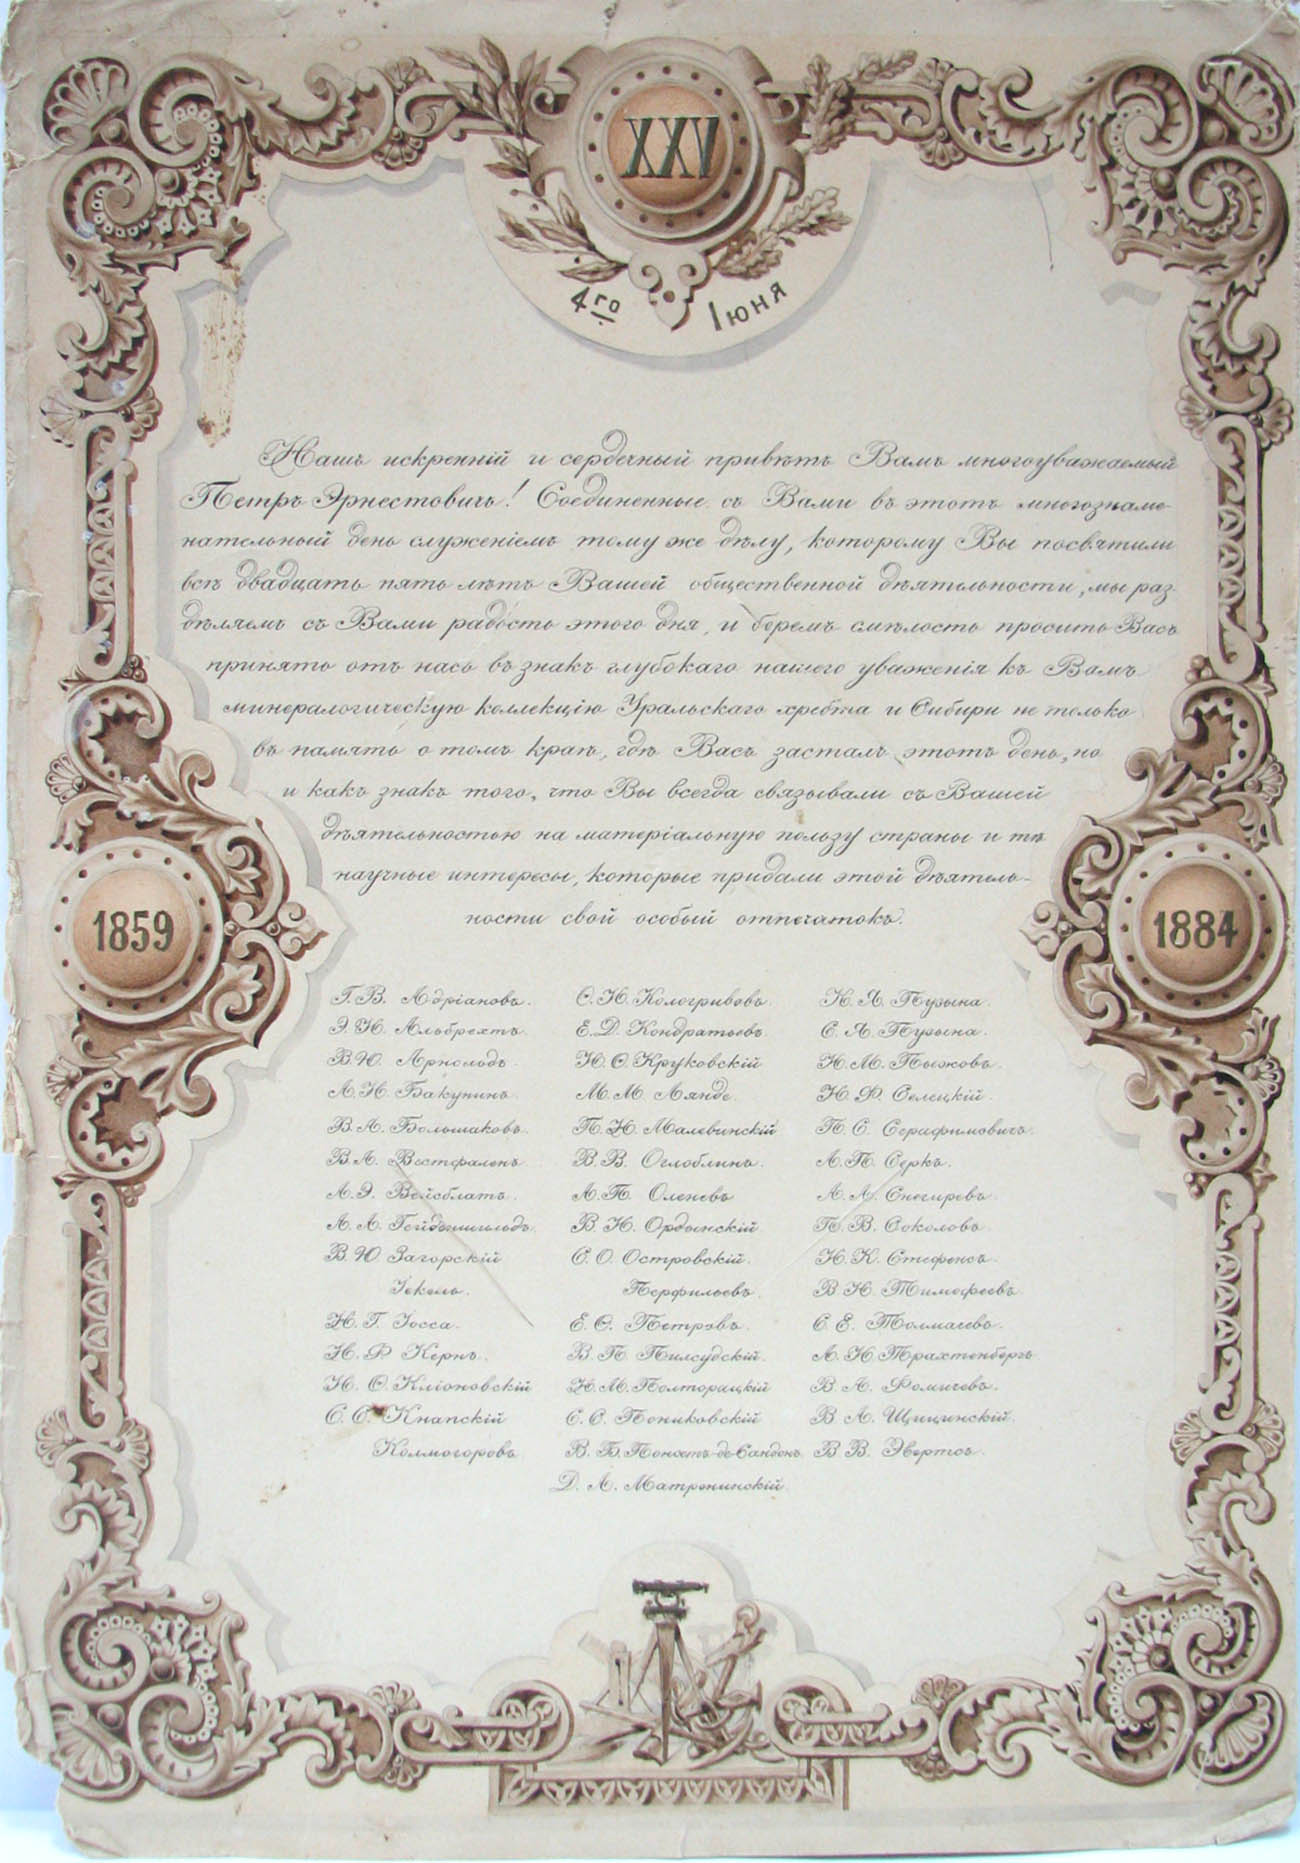 XXV
4го Iюня
Нашъ искреннiй и сердечный привѣтъ Вамъ многоуважаемый
Петръ Эрнестовичъ! Соединенные съ Вами въ этотъ многознаме-
нательный день служенiемъ тому же дѣлу, которому Вы посвятили
всѣ двадцать пять лѣтъ Вашей общественной дѣятельности, мы раз-
дѣляемъ съ Вами радость этого дня, и беремъ смѣлость просить Васъ
принять отъ насъ въ знакъ глубокаго нашего уваженiя къ Вамъ
минералогическую коллекцiю Уральскаго хребта и Сибири не только
въ память о томъ краѣ, гдѣ Васъ засталъ этотъ день, но
и какъ знакъ того, что Вы всегда связывали съ Вашей
дѣятельностью на матерiальную пользу страны и тѣ
научные интересы, которые придали этой дѣятель-
ности свой особый отпечатокъ.
1859
1884
Г. В. Адрiановъ.
Э. Н. Альбрехтъ.
В. Ю. Арнольдъ.
А. Н. Бакунинъ.
В. А. Большаковъ.
В. А. Вестфаленъ.
А. Э. Вейсблатъ.
А. А. Гейденшильдъ.
В. Ю. Загорскiй
Iекель.
Н. Г. Iосса.
Н. Ф. Кернъ.
Н. О. Клiоновскiй
С. С. Кнапскiй
Колмогоровъ.
С. Н. Кологривовъ.
Е. Д. Кондратьевъ.
Н. С. Круковскiй
М. М. Лянде.
П. Н. Малевинскiй
В. В. Оглоблинъ.
А. П. Оленевъ
В. Н. Ордынскiй
С. О. Островскiй.
Перфильевъ.
Е. С. Петровъ.
В. П. Пилсудскiй.
Н. М. Полторацкiй
С. С. Пониковскiй
В. Б. Понсетъ-де-Сандонъ.
Д. А. Матренинскiй.
К. Я. Пузына.
С. Я. Пузына.
Н. М. Пыжовъ.
Н. Ф. Селецкiй.
П. С. Серафимовичъ.
А. П. Серкъ.
А. А. Снегиревъ.
П. В. Соколовъ.
Н. К. Стефенсъ.
В. Н. Тимофеевъ.
С. Е. Толмачевъ.
А. Н. Трахтенбергъ.
В. А. Фомичевъ.
В. А. Щицинскiй.
В. В. Эвертсъ.